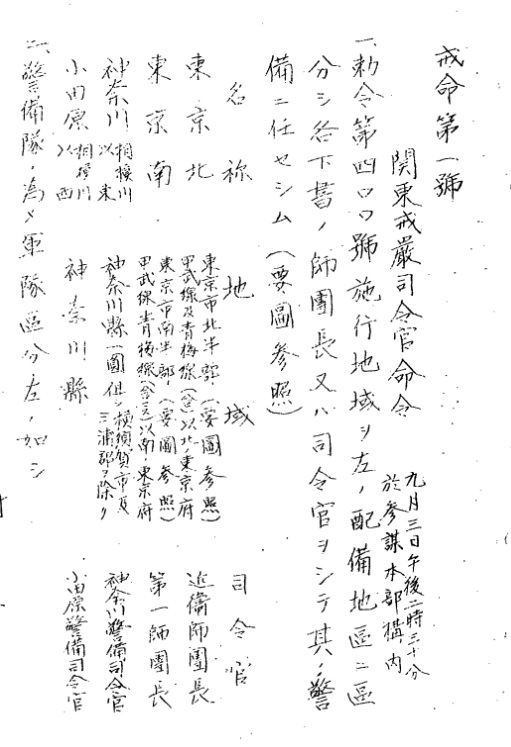 戒命第一號
関東戒嚴司令官命令
九月三日午後二時三十分
於參謀本部構内
一、勅令第四〇〇號施行地域ヲ左ノ配備地區ニ區
分シ各下書ノ師團長又ハ司令官ヲシテ其ノ警
備ニ任セシム(要圖參照)
名称 地域 司令官
東京北 東京市北半部(要圖參照)
甲武線及青梅線(含ム)以北ノ東京府 近衞師團長
東京南 東京市南半部(要圖參照)
甲武線青梅線(含マス)以南ノ東京府 第一師團長
神奈川 相摸川以東 神奈川縣一圓但シ横須賀市及
三浦郡ヲ除ク 神奈川警備司令官
小田原 相摸川以西 神奈川縣 小田原警備司令官
二、警備隊ノ為メ軍隊區分左ノ如シ